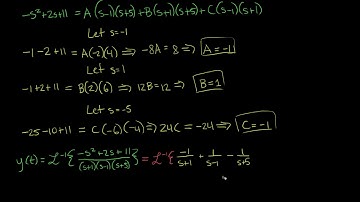 -s²+2s+11 = A(s-1)(s+5)+B(s+1)(s+5)+C(s-1)(s+1)
Let s=-1
-1-2+11 = A(-2)(4) ⇒ -8A=8 ⇒ A=-1
Let s=1
-1+2+11 = B(2)(6) ⇒ 12B=12 ⇒ B=1
Let s=-5
-25-10+11 = C(-6)(-4) ⇒ 24C=-24 ⇒ C=-1
y(t) = ℒ⁻¹{(-s²+2s+11)/((s+1)(s-1)(s+5))} = ℒ⁻¹{-1/(s+1) + 1/(s-1) - 1/(s+5)